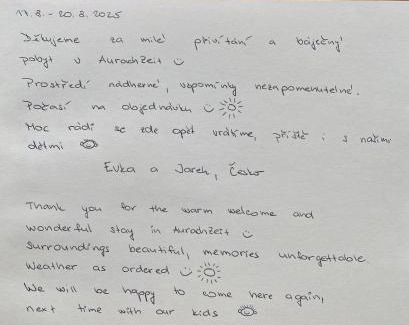 17.8. - 20.8.2025
Děkujeme za milé přivítání a báječný
pobyt v Aurachzeit ☺
Prostředí nádherné, vzpomínky nezapomenutelné.
Počasí na objednávku ☺ ☀
Moc rádi se zde opět vrátíme, příště i s našimi
dětmi
Evka a Jarek, Česko
Thank you for the warm welcome and
wonderful stay in Aurachzeit ☺
Surroundings beautiful, memories unforgettable.
Weather as ordered ☺ ☀
We will be happy to come here again,
next time with our kids